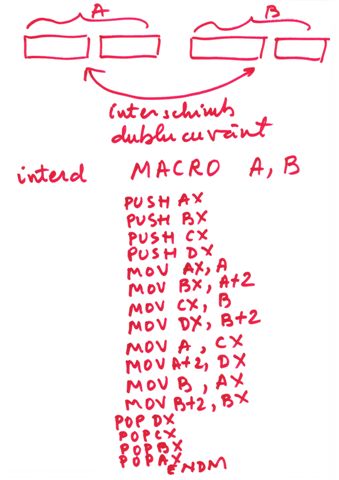 A B
Interschimb
dublu cuvânt
interd MACRO A, B
PUSH AX
PUSH BX
PUSH CX
PUSH DX
MOV AX, A
MOV BX, A+2
MOV CX, B
MOV DX, B+2
MOV A, CX
MOV A+2, DX
MOV B, AX
MOV B+2, BX
POP DX
POP CX
POP BX
POP AX
ENDM